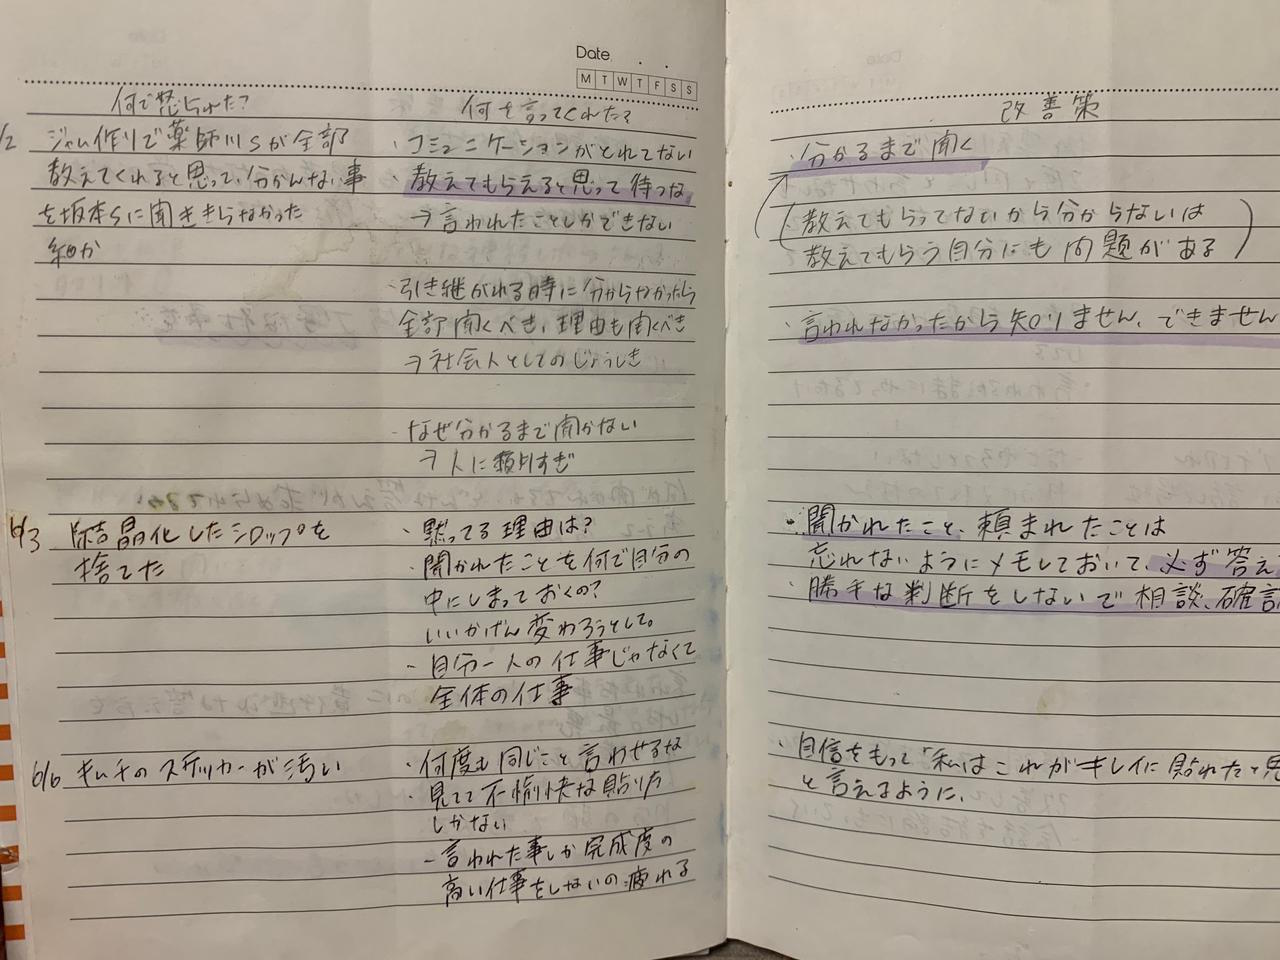 Date
M T W T F S S
何で怒られた?
何を言ってくれた?
/2 ジャム作りで薬師川Sが全部
教えてくれると思って、分かんない事
を坂本Sに聞ききらなかった
細か
・コミュニケーションがとれてない
・教えてもらえると思って待つな
→言われたことしかできない
・引き継がれる時に分からなかったら
全部聞くべき、理由も聞くべき
→社会人としてのじょうしき
・なぜ分かるまで聞かない
→人に頼りすぎ
6/3 結晶化したシロップを
捨てた
・黙ってる理由は?
・聞かれたことを何で自分の
中にしまっておくの?
いいかげん変わろうとして。
・自分一人の仕事じゃなくて
全体の仕事
6/6 キムチのステッカーが汚い
・何度も同じこと言わせるな
・見てて不愉快な貼り方
しかない
-言われた事しか完成度の
高い仕事をしないの疲れる
改善策
・分かるまで聞く
(教えてもらってないから分からないは
教えてもらう自分にも問題がある)
・言われなかったから知りません、できません
・聞かれたこと、頼まれたことは
忘れないようにメモしておいて、必ず答え
・勝手な判断をしないで相談、確認
・自信をもって「私はこれがキレイに貼れたと思
と言えるように、